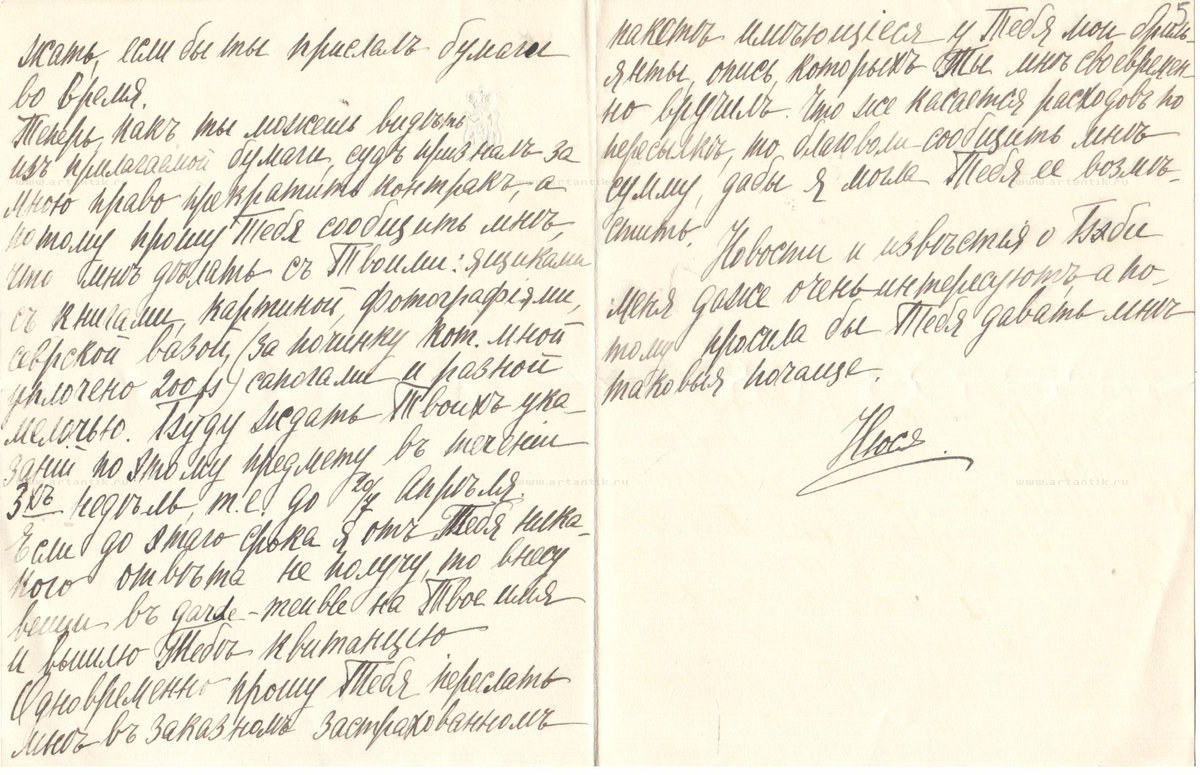 жать, если бы ты прислалъ бумаги
во время.
Теперь, какъ ты можешь видѣть
изъ прилагаемой бумаги, судъ призналъ за
мною право прекратить контрак, а
потому прошу Тебя сообщить мнѣ,
что мнѣ дѣлать съ Твоими: ящиками
съ книгами, картиной, фотографіями,
севрской вазой, (за починку кот. мной
уплочено 200 fs) сапогами и разной
мелочью. Буду ждать Твоихъ ука-
заній по этому предмету въ теченіи
3хъ недѣль, т.е. до 20/7 Апрѣля.
Если до этаго срока я отъ Тебя ника-
кого отвѣта не получу, то внесу
вещи въ garde-meuble на Твое имя
и вышлю Тебѣ квитанцію
Одновременно прошу Тебя переслать
мнѣ въ заказномъ застрахованномъ
5
пакетѣ имѣющіеся у Тебя мои брилі-
янты, опись которыхъ Ты мнѣ своевремен-
но вручилъ. Что же касается расходовъ по
пересылкѣ, то благоволи сообщить мнѣ
сумму, дабы я могла Тебя ее возмѣ-
стить.
Новости и извѣстья о Бэби
меня даже очень интересуютъ а по-
тому просила бы Тебя давать мнѣ
таковыя почаще.
Нюся.
www.artantik.ru
www.artantik.ru
www.artantik.ru
www.artantik.ru